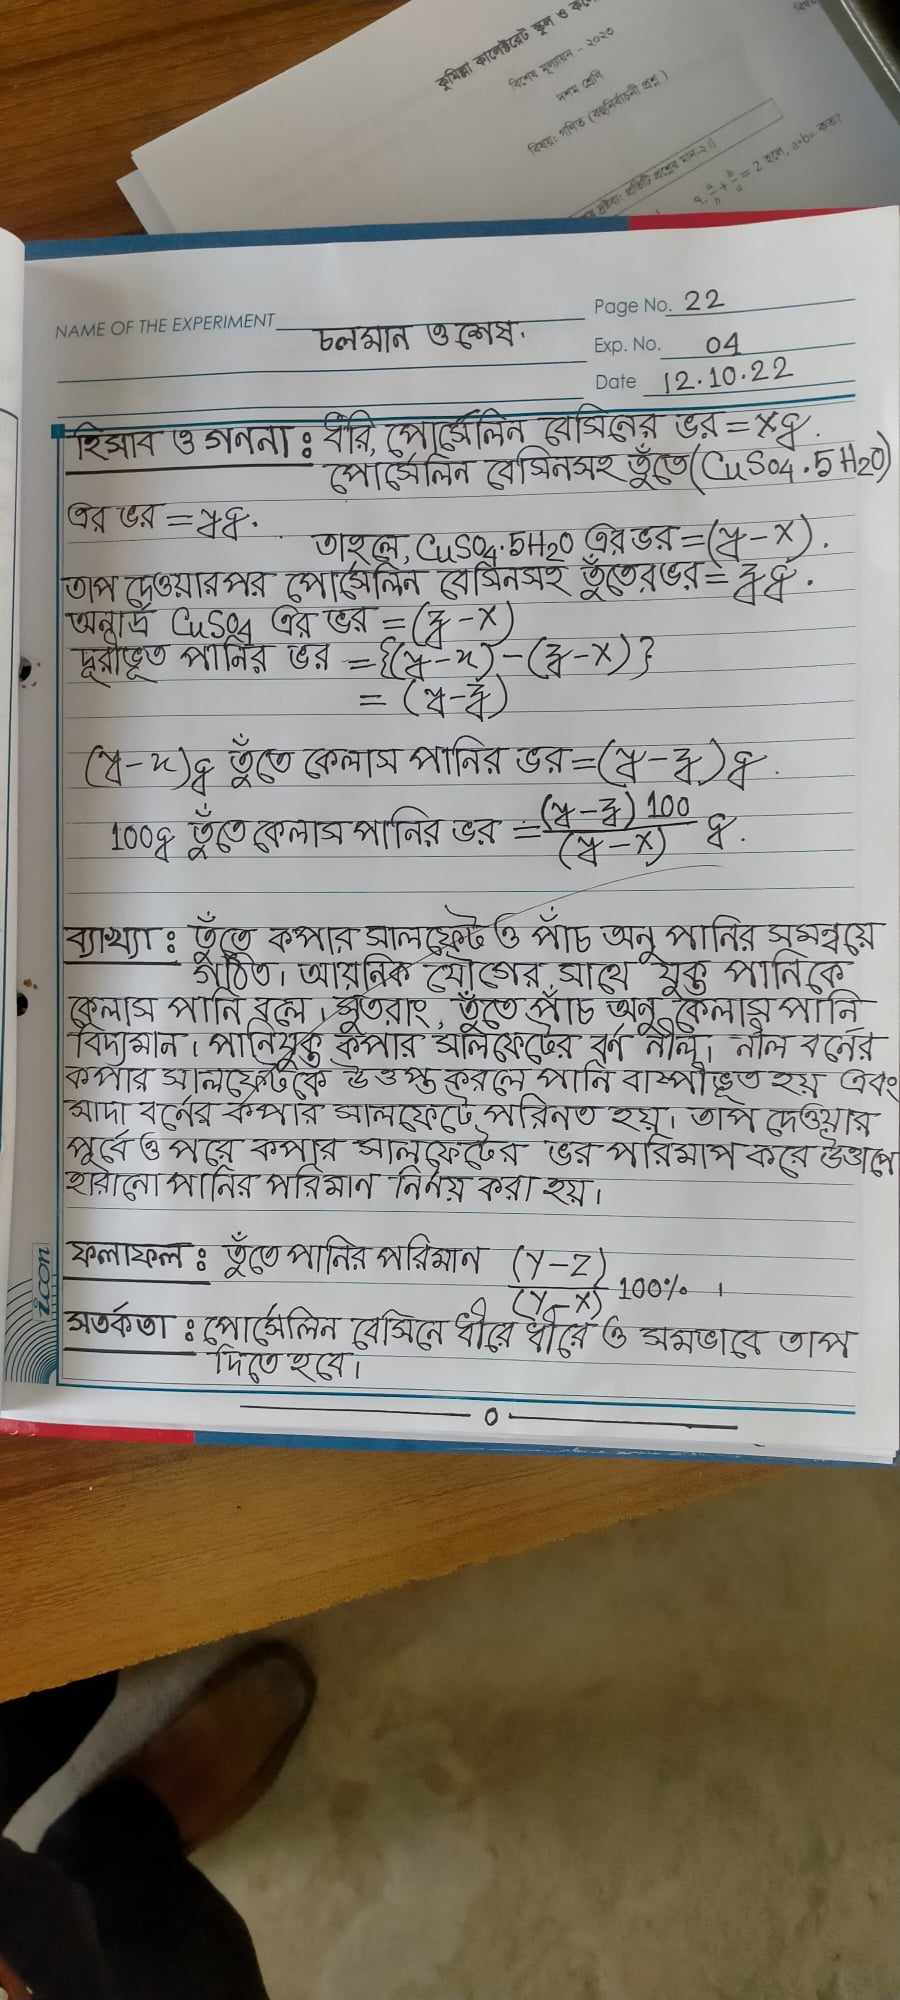 কুমিল্লা কালেক্টরেট স্কুল ও
বিশেষ মূল্যায়ন - ২০২৩
দশম শ্রেণি
বিষয়: গণিত (বহুনির্বাচনী প্রশ্ন)
NAME OF THE EXPERIMENT
চলমান ও শেষ.
Page No. 22
Exp. No. 04
Date 12.10.22
হিসাব ও গননা : ধরি, পোর্সেলিন বেসিনের ভর = xg.
পোর্সেলিন বেসিনসহ তুঁতে (CuSO4.5H2O)
এর ভর = yg.
তাহলে, CuSO4.5H2O এর ভর = (y-x).
তাপ দেওয়ার পর পোর্সেলিন বেসিনসহ তুঁতের ভর = zg.
অনার্দ্র CuSO4 এর ভর = (z-x)
দূরীভূত পানির ভর = {(y-x)-(z-x)}
= (y-z)
(y-x)g তুঁতে কেলাস পানির ভর = (y-z)g.
100g তুঁতে কেলাস পানির ভর = (y-z) 100 / (y-x) g.
ব্যাখ্যা : তুঁতে কপার সালফেট ও পাঁচ অনু পানির সমন্বয়ে
গঠিত। আয়নিক যৌগের সাথে যুক্ত পানিকে
কেলাস পানি বলে। সুতরাং, তুঁতে পাঁচ অনু কেলাস পানি
বিদ্যমান। পানিযুক্ত কপার সালফেটের বর্ণ নীল। নীল বর্নের
কপার সালফেটকে উত্তপ্ত করলে পানি বাস্পীভূত হয় এবং
সাদা বর্নের কপার সালফেটে পরিনত হয়। তাপ দেওয়ার
পূর্বে ও পরে কপার সালফেটের ভর পরিমাপ করে উত্তাপে
হারানো পানির পরিমান নির্নয় করা হয়।
ফলাফল : তুঁতে পানির পরিমান (Y-Z) / (Y-X) 100% ।
সতর্কতা : পোর্সেলিন বেসিনে ধীরে ধীরে ও সমভাবে তাপ
দিতে হবে।
icon